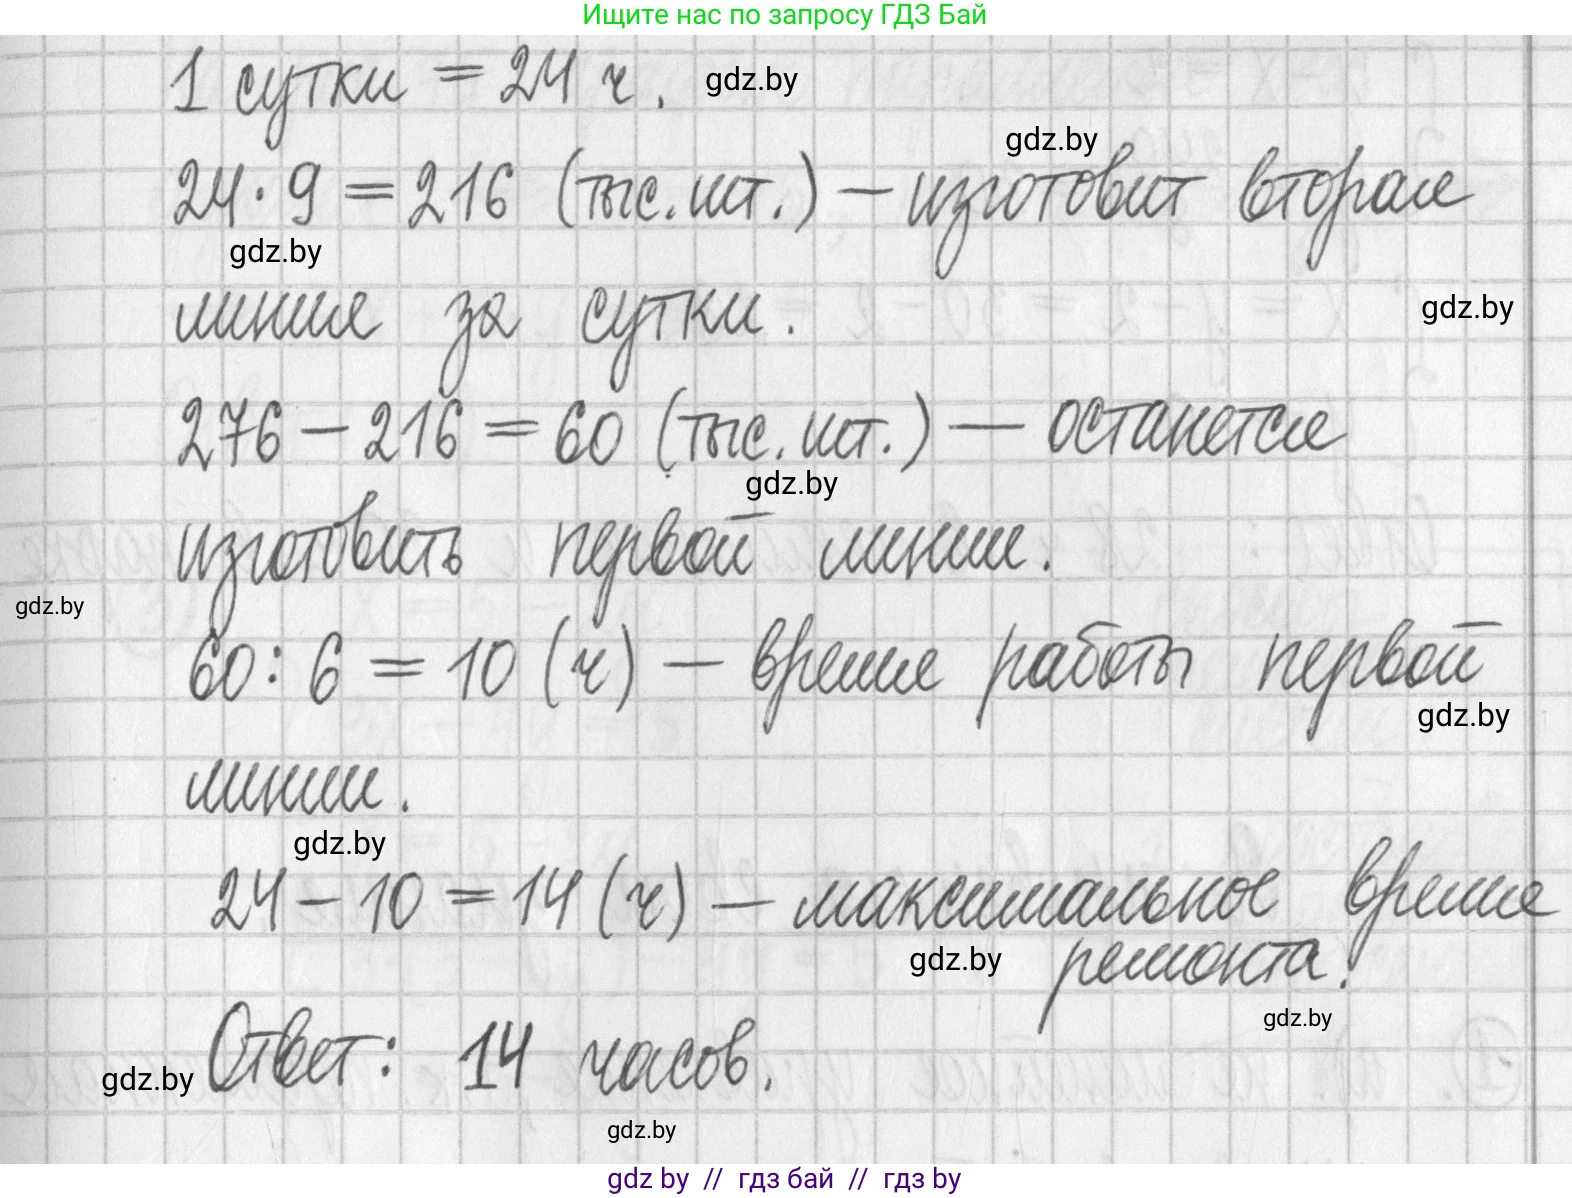 Ищите нас по запросу ГДЗ Бай
1 сутки = 24 ч. gdz.by
gdz.by
24 · 9 = 216 (тыс. шт.) — изготовит вторая
gdz.by
линия за сутки.
gdz.by
276 – 216 = 60 (тыс. шт.) — останется
gdz.by
изготовить первой линии.
gdz.by
60 : 6 = 10 (ч) — время работы первой
gdz.by
линии.
gdz.by
24 – 10 = 14 (ч) — максимальное время
gdz.by ремонта.
gdz.by
gdz.by Ответ: 14 часов.
gdz.by
gdz by // гдз бай // гдз by